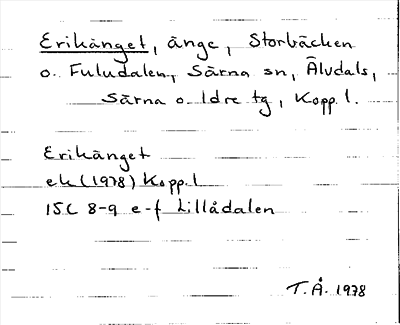 Erikänget, änge, Storbäcken
o. Fuludalen, Särna sn, Älvdals,
Särna o. Idre tg, Kopp. l.
Erikänget
ek (1978) Kopp. l
15C 8-9 e-f Lillådalen
T.Å. 1978